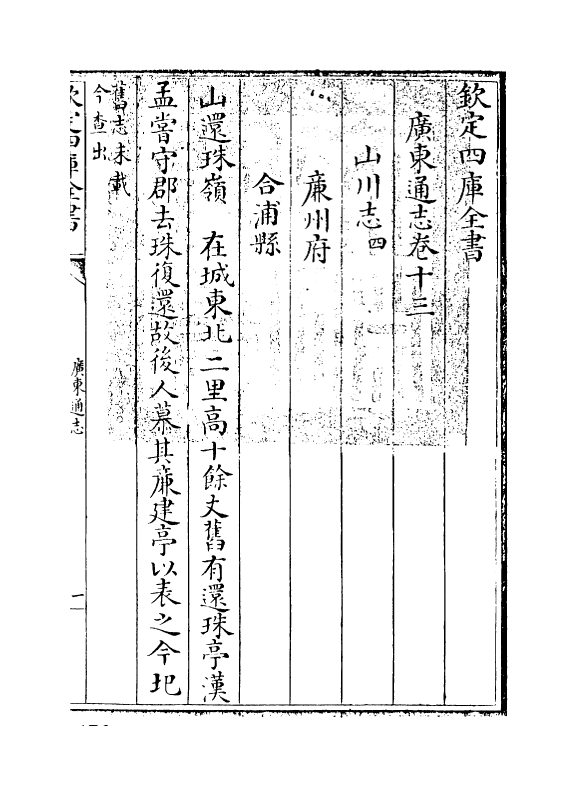 欽定四庫全書
廣東通志卷十三
山川志四
廉州府
合浦縣
山還珠嶺　在城東北二里高十餘丈舊有還珠亭漢
孟嘗守郡去珠復還故後人慕其廉建亭以表之今圯
舊志未載
今查出
欽定四庫全書
廣東通志